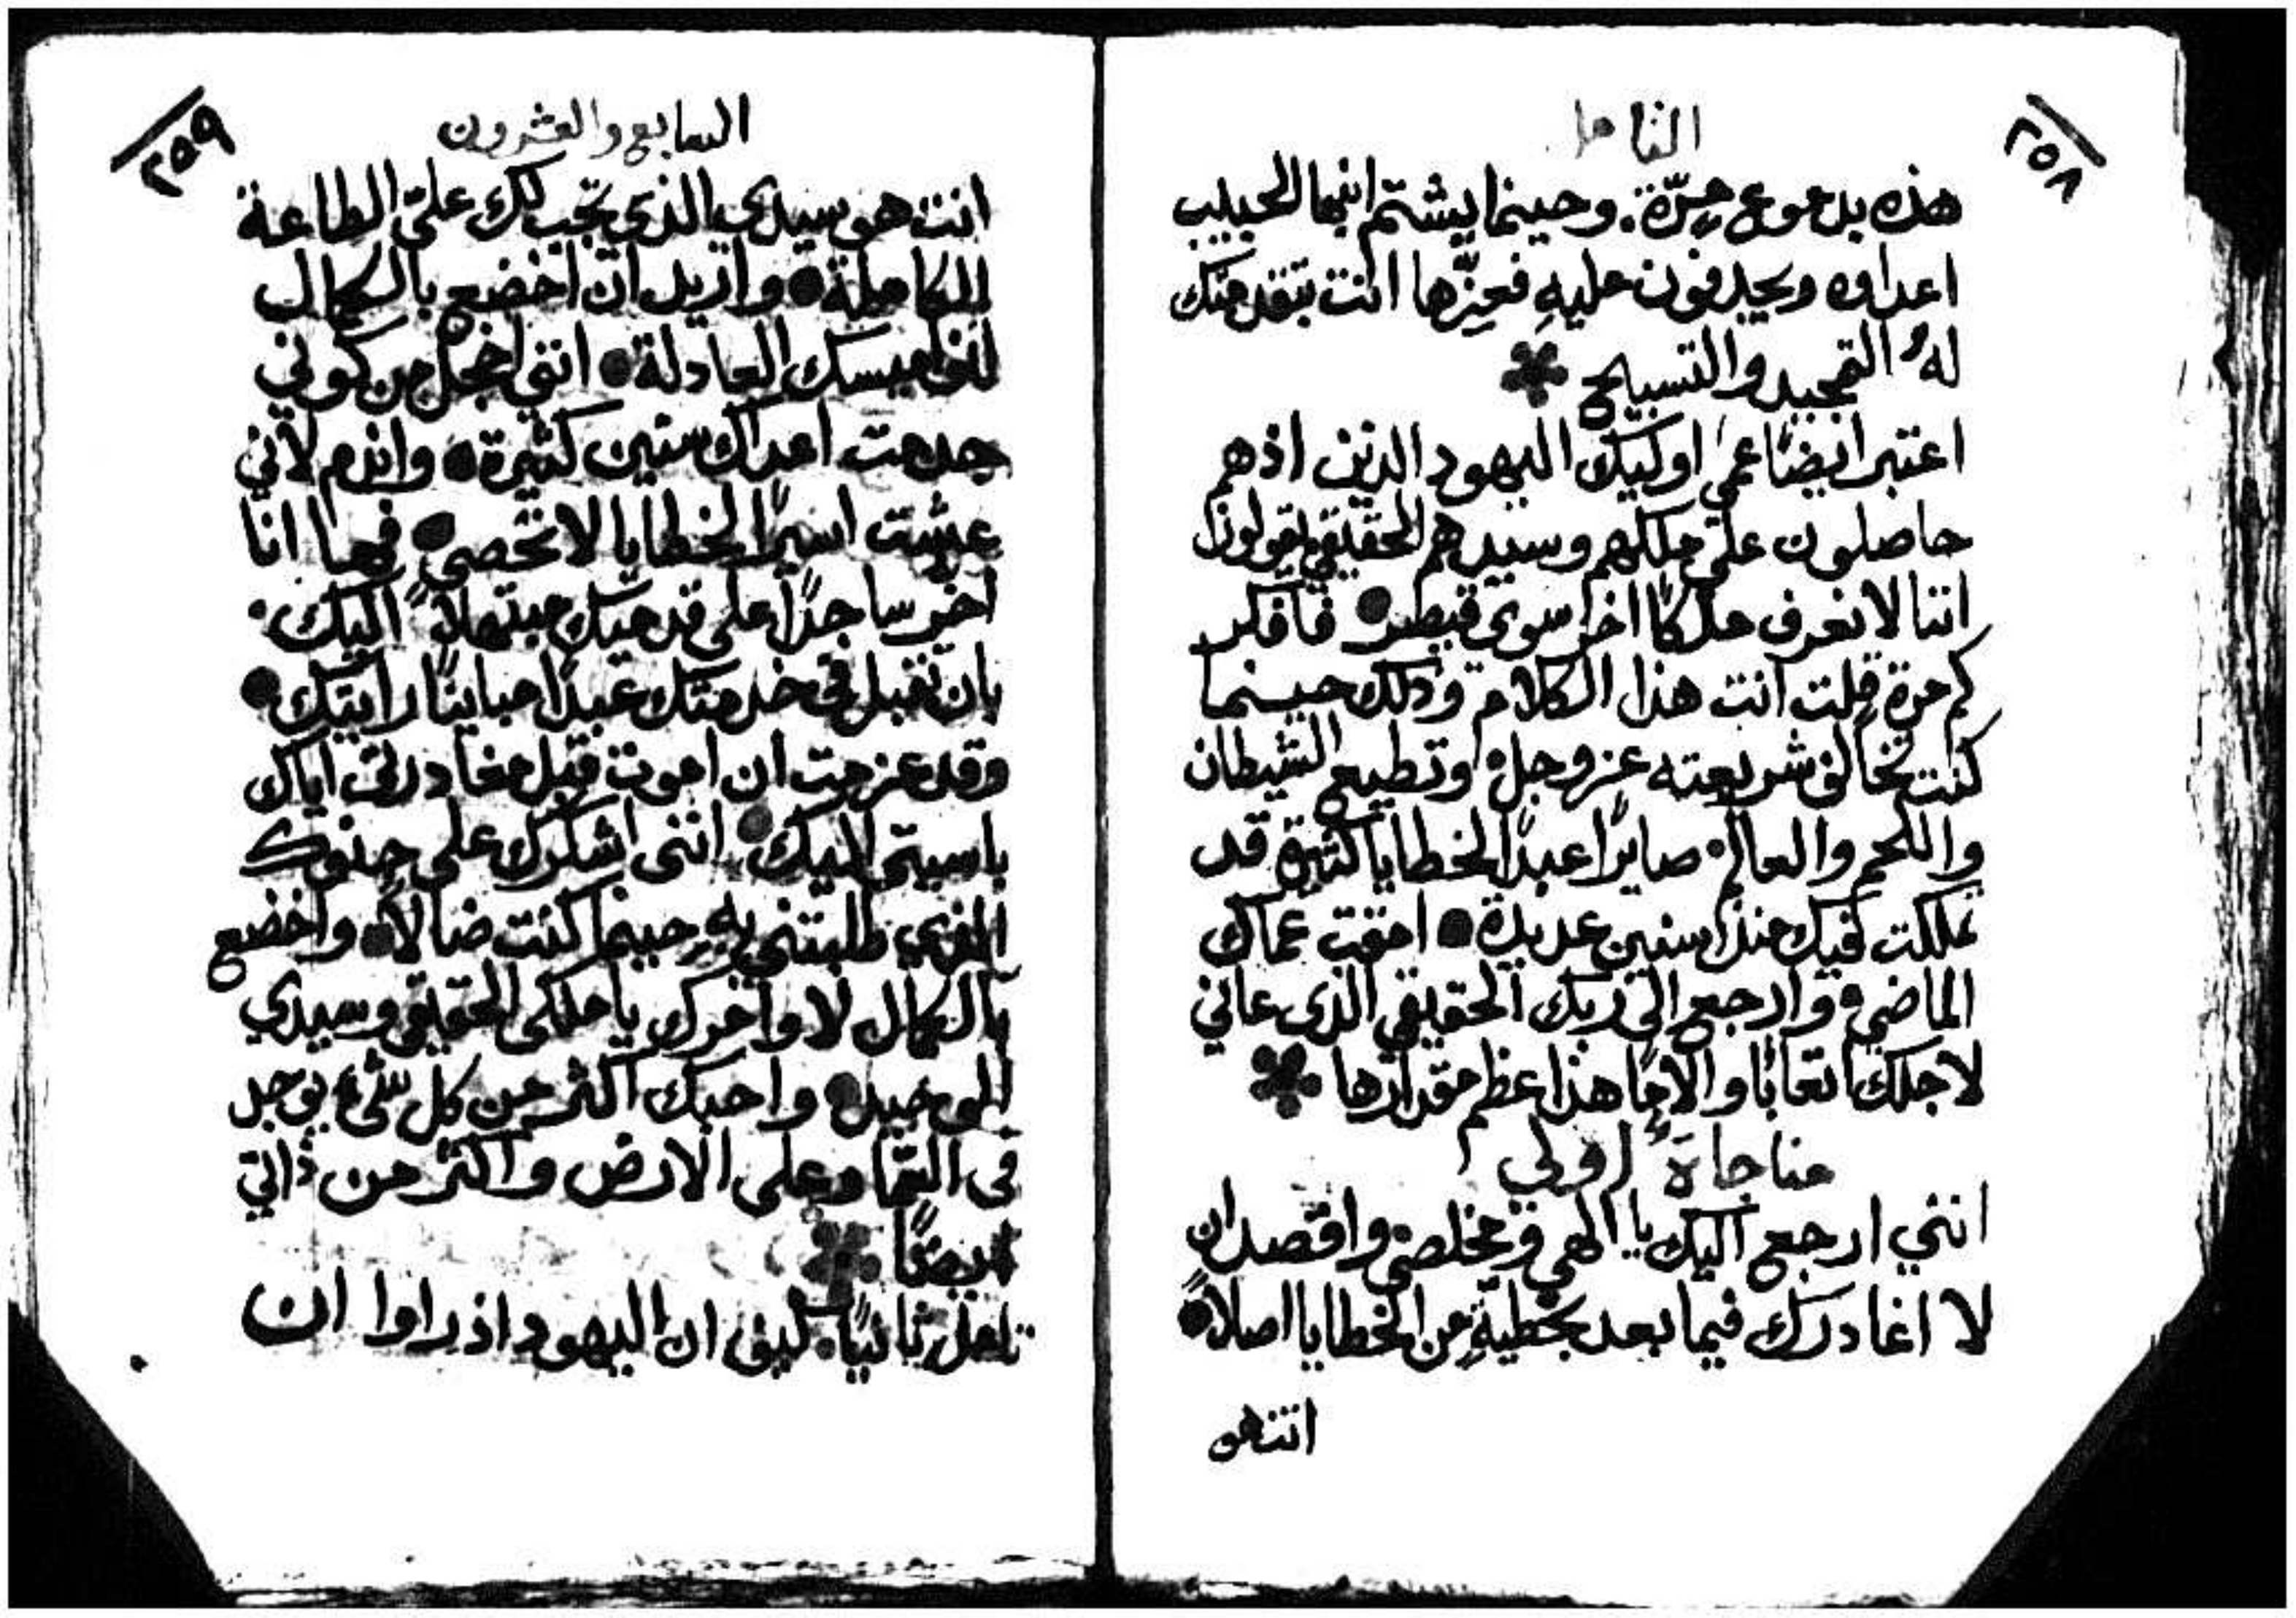 ٢٥٨
التامل
هذه بدموع مرّة. وحينما يشتم ابنها الحبيب
اعداوه ويجدفون عليهِ فعزّها انت بتقدمتك
لهُ التمجيد والتسبيح
اعتبر ايضًا عمى اوليك اليهود الذين اذ هم
حاصلون على ملكهم وسيدهم الحقيقي يقولون
اننا لا نعرف ملكًا اخر سوى قيصر فافكر
كم مرة قلت انت هذا الكلام وذلك حينما
كنت تخالف شريعته عز وجل وتطيع الشيطان
واللحم والعالم صايرًا عبدًا لخطايا كثيرة قد
تملكت فيك منذ سنين عديدة امقت عماك
الماضي وارجع الى ربك الحقيقي الذى عانى
لاجلك اتعابًا والامًا هذا عظم مقدارها
مناجاة اولى
انني ارجع اليك يا الهي ومخلصي واقصد ان
لا اغادرك فيما بعد بخطيةٍ من الخطايا اصلاً
انت هو
٢٥٩
السابع والعشرون
انت هو سيدي الذي تجب لك عليّ الطاعة
الكاملة واريد ان اخضع بالكمال
لنواميسك العادلة انني اخجل من كوني
خدمت اعداك سنين كثيرة واندم لاني
عشت اسيرًا لخطايا لا تحصى فها انا
اخر ساجدًا على قدميك مبتهلاً اليك
بان تقبل في خدمتك عبدًا مباينًا رايتك
وقد عزمت ان اموت قبل مغادرتى اياك
باسيتى اليك اننى اشكرك على حنوك
الذي طلبتني بهِ حينما كنت ضالاً واخضع
بالكمال لاوامرك يا ملكى الحقيقي وسيدي
الوحيد واحبك اكثر من كل شيء يوجد
فى السما وعلى الارض واكثر من ذاتي
ايضًا
تامل ثانيًا كيف ان اليهود اذ راوا ان